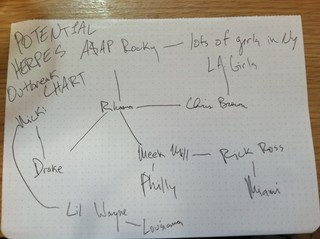 POTENTIAL
HERPES
Outbreak
CHART
A$AP Rocky — lots of girls in NY
LA Girls
Rihanna — Chris Brown
Nicki
Drake
Meek Mill — Rick Ross
Philly
Miami
Lil Wayne — Louisiana